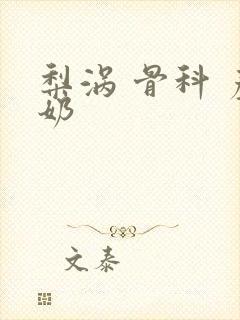 梨涡 骨科
奶
文泰